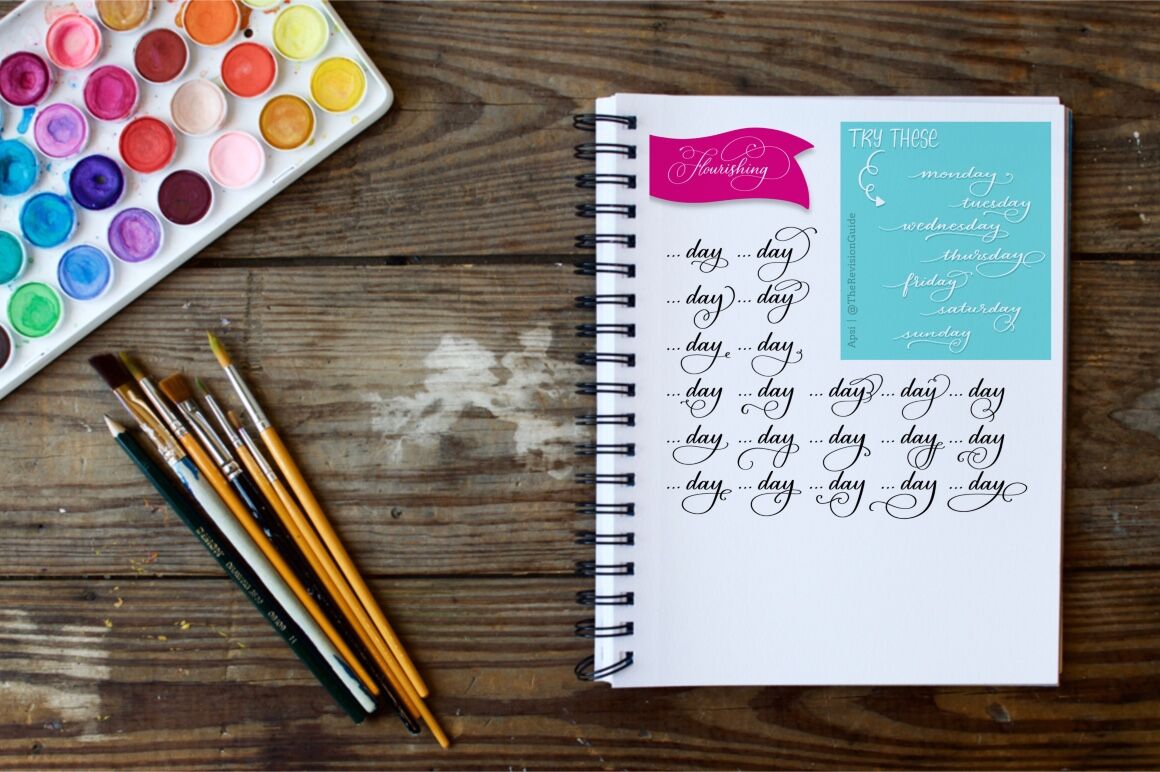 Flourishing
TRY THESE
monday
tuesday
wednesday
thursday
friday
saturday
sunday
Apsi | @TheRevisionGuide
... day ... day
... day ... day
... day ... day
... day ... day ... day ... day ... day
... day ... day ... day ... day ... day
... day ... day ... day ... day ... day